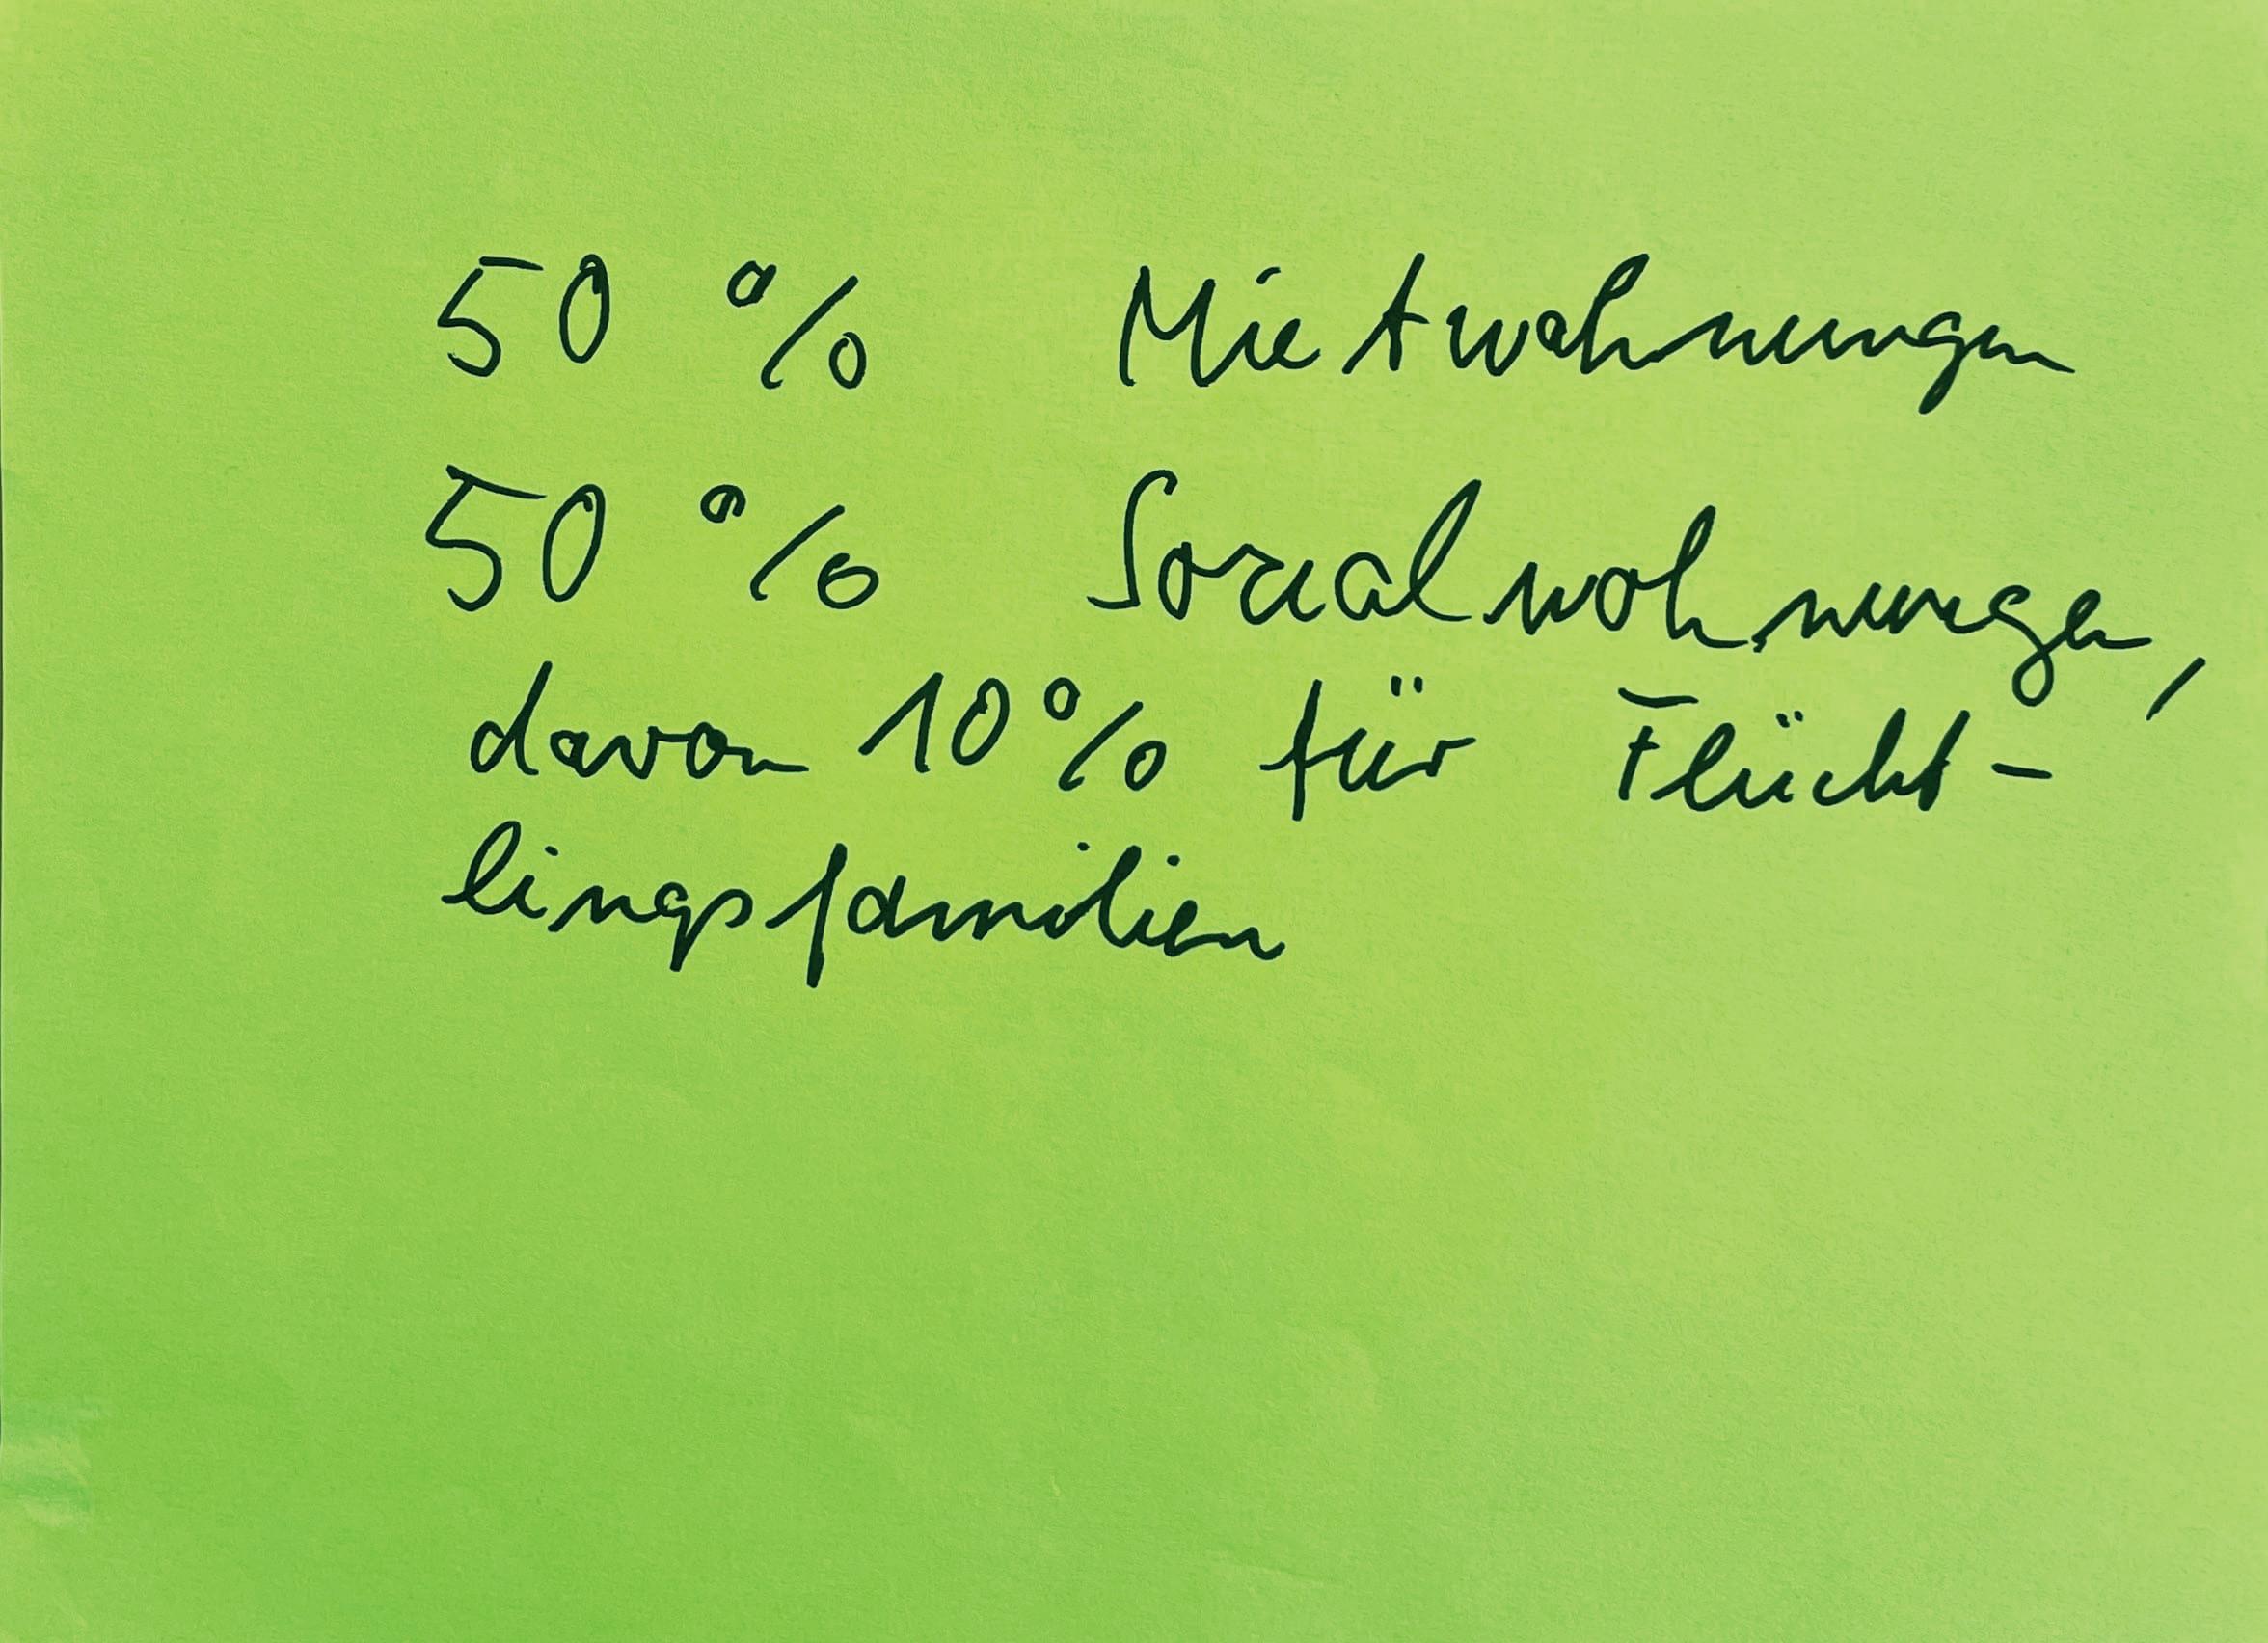 50 % Mietwohnungen
50 % Sozialwohnungen,
davon 10% für Flücht-
lingsfamilien